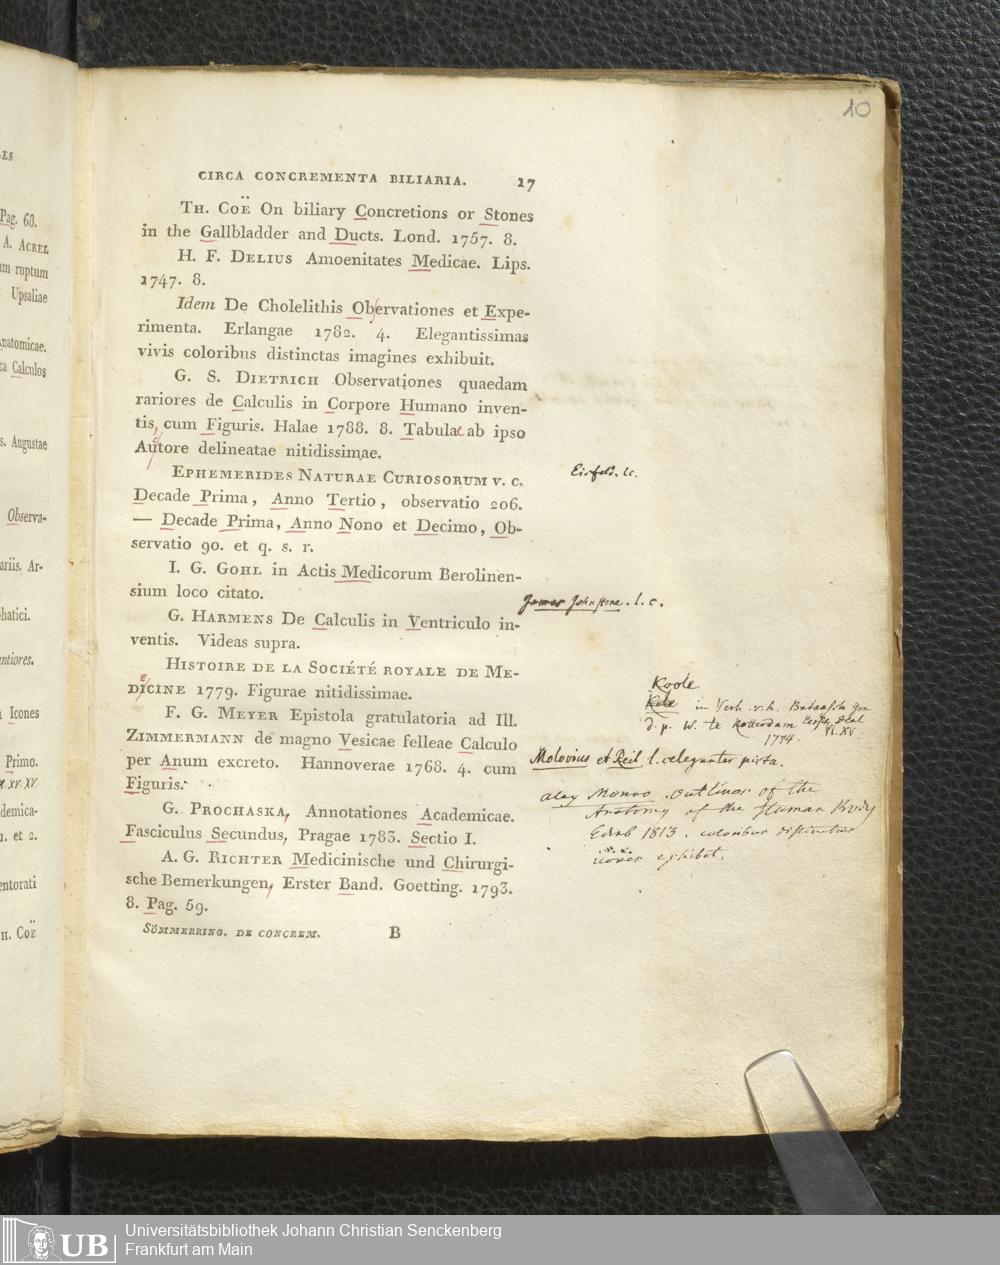 10
CIRCA CONCREMENTA BILIARIA. 17
TH. COË On biliary Concretions or Stones
in the Gallbladder and Ducts. Lond. 1757. 8.
H. F. DELIUS Amoenitates Medicae. Lips.
1747. 8.
Idem De Cholelithis Observationes et Expe-
rimenta. Erlangae 1782. 4. Elegantissimas
vivis coloribus distinctas imagines exhibuit.
G. S. DIETRICH Observationes quaedam
rariores de Calculis in Corpore Humano inven-
tis, cum Figuris. Halae 1788. 8. Tabulae ab ipso
Autore delineatae nitidissimae.
EPHEMERIDES NATURAE CURIOSORUM v. c.
Decade Prima, Anno Tertio, observatio 206.
— Decade Prima, Anno Nono et Decimo, Ob-
servatio 90. et q. s. r.
I. G. GOHL in Actis Medicorum Berolinen-
sium loco citato.
G. HARMENS De Calculis in Ventriculo in-
ventis. Videas supra.
HISTOIRE DE LA SOCIÉTÉ ROYALE DE ME-
DICINE 1779. Figurae nitidissimae.
F. G. MEYER Epistola gratulatoria ad Ill.
ZIMMERMANN de magno Vesicae felleae Calculo
per Anum excreto. Hannoverae 1768. 4. cum
Figuris.
G. PROCHASKA, Annotationes Academicae.
Fasciculus Secundus, Pragae 1783. Sectio I.
A. G. RICHTER Medicinische und Chirurgi-
sche Bemerkungen, Erster Band. Goetting. 1793.
8. Pag. 59.
SÖMMERRING. DE CONCREM. B
Eisfeld. l.c.
James Johnstone. l. c.
Koole
in Verh. v. h. Bataafsch Gen
d. p. W. te Rotterdam
1774. Pl. XV.
Molovius et Reil l. eleganter picta.
Alex Monro outlines of the
Anatomy of the Human Body
Edinb 1813. coloribus distinctas
icones exhibet.
ES
Pag. 68.
A. ACREL
um ruptum
Upsaliae
natomicae.
Calculos
s. Augustae
Observa-
ariis. Ar-
hatici.
ntiores.
Icones
Primo.
XV. XV.
demica-
1. et 2.
entorati
H. COË
UB
Universitätsbibliothek Johann Christian Senckenberg
Frankfurt am Main